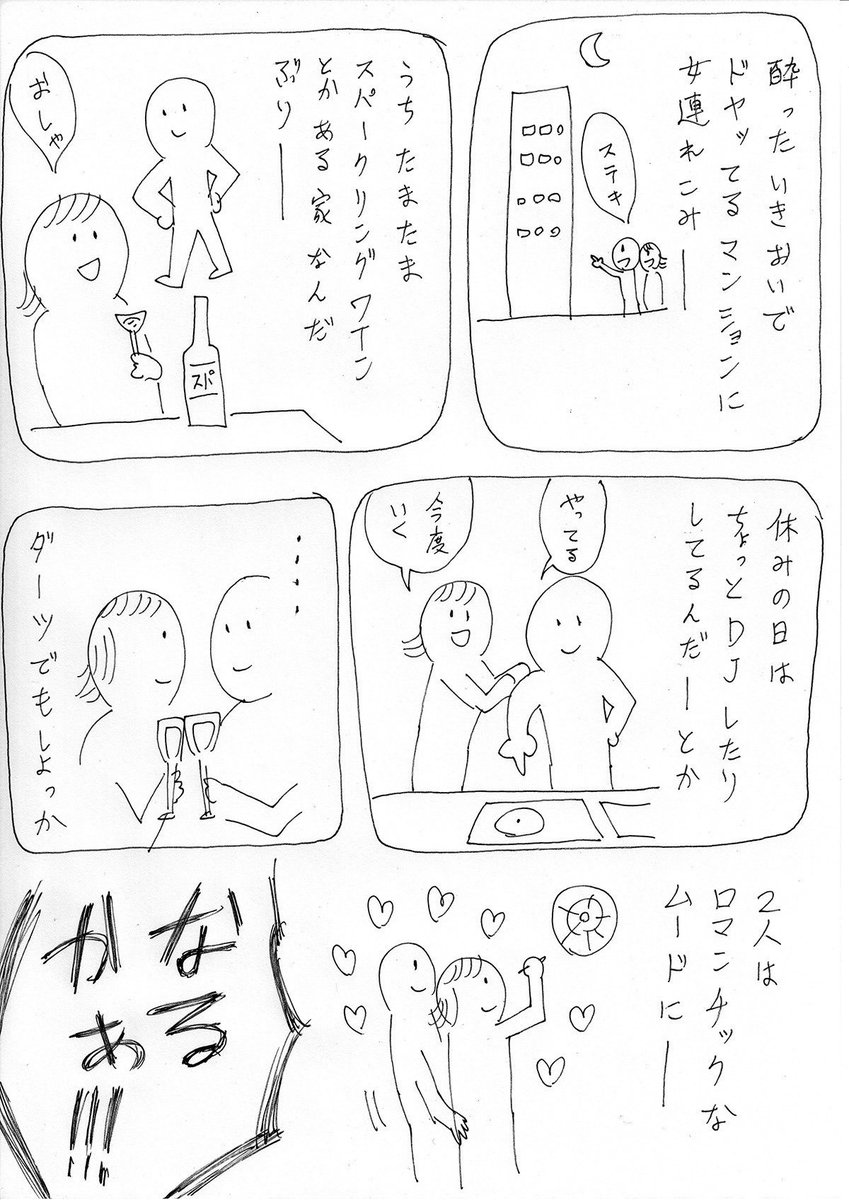 酔ったいきおいで
ドヤッてるマンションに
女連れこみー
ステキ
うちたまたま
スパークリングワイン
とかある家なんだ
ぶりー
おしゃ
スパ
休みの日は
ちょっとDJしたり
してるんだーとか
やってる
今度
いく
・・・・
ダーツでもしよっか
2人は
ロマンチックな
ムードにー
なるかぁ!!!